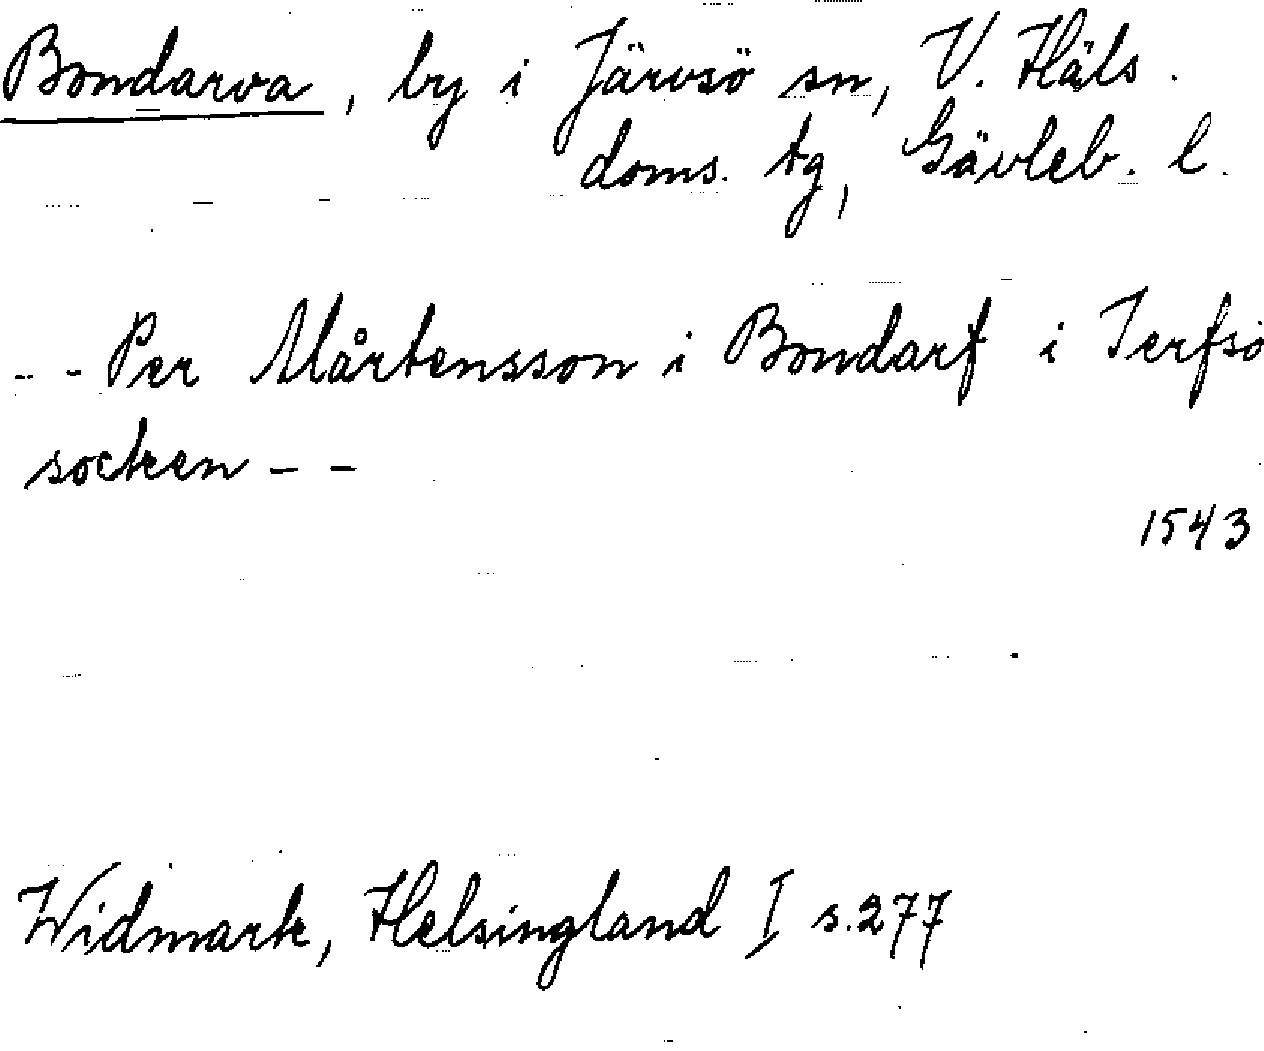 Bondarva, by i Järvsö sn, V. Häls.
doms. tg, Gävleb. l.
- - Per Mårtensson i Bondarf i Jerfsö
socken - -
1543
Widmark, Helsingland I s. 277